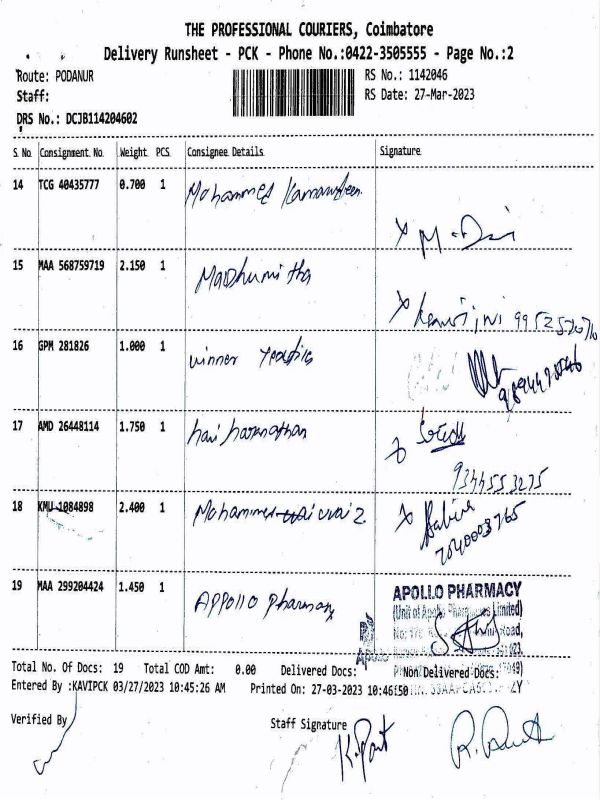 THE PROFESSIONAL COURIERS, Coimbatore
Delivery Runsheet - PCK - Phone No.:0422-3505555 - Page No.:2
Route: PODANUR RS No.: 1142046
Staff: RS Date: 27-Mar-2023
DRS No.: DCJB114204602
S No Consignment No. Weight PCS Consignee Details Signature
14 TCG 40435777 0.700 1 Mohammed
15 MAA 568759719 2.150 1 Madhumitha
16 GPM 281826 1.000 1 winner
17 AMD 26448114 1.750 1 hari
9344553275
18 KMU 1084898 2.400 1 Mohammed
7540003765
19 MAA 299204424 1.450 1 APPollo Pharmacy
APOLLO PHARMACY
(Unit of Apollo Limited)
Road,
Total No. Of Docs: 19 Total COD Amt: 0.00 Delivered Docs: Non Delivered Docs:
Entered By :KAVIPCK 03/27/2023 10:45:26 AM Printed On: 27-03-2023 10:46:50
Verified By Staff Signature